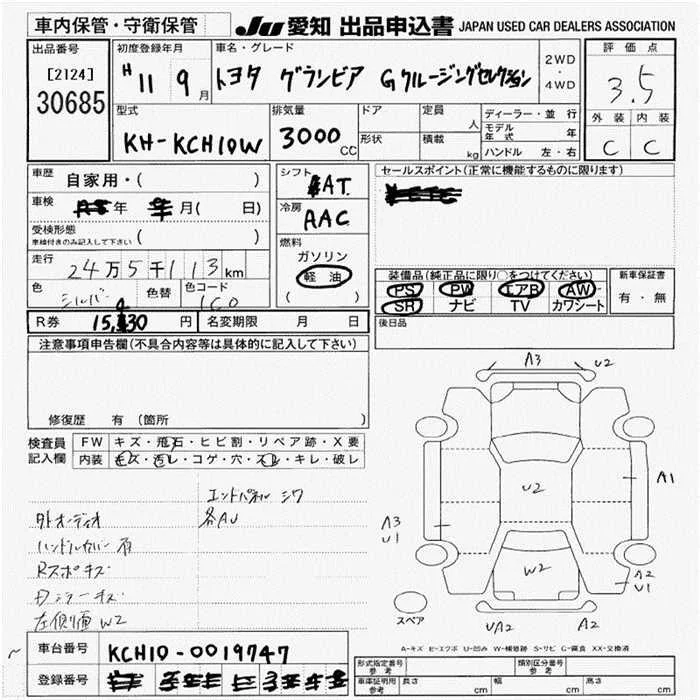 車内保管・守衛保管
JU 愛知 出品申込書 JAPAN USED CAR DEALERS ASSOCIATION
出品番号
[2124]
30685
初度登録年月
H 11 9月
車名・グレード
トヨタ グランビア Gクルージングセレクション
2WD
・
4WD
評価点
3.5
外装 内装
C C
型式
KH-KCH10W
排気量
3000 CC
ドア
形状
定員 人
積載 kg
ディーラー・並行
モデル年式 年
ハンドル 左・右
車歴 自家用・( )
車検 年 月( 日)
受検形態
車検付きのみ記入して下さい ( )
走行 24万5千113km
色 シルバー 色替 色コード 1C0
シフト AT
冷房 AAC
燃料
ガソリン
軽油
( )
セールスポイント(正常に機能するものに限ります)
装備品(純正品に限り○をつけてください)
PS PW エアB AW
SR ナビ TV カワシート
新車保証書
有・無
R券 15,430円 名変期限 月 日
後日品
注意事項申告欄(不具合内容等は具体的に記入して下さい)
修復歴 有 (箇所 )
検査員記入欄
FW キズ・飛石・ヒビ割・リペア跡・X要
内装 キズ・汚レ・コゲ・穴・スレ・キレ・破レ
エンドパネル シワ
外オーディオ 各AU
ハンドルカバー有
Rスポキズ
左側面W2
A3 U2
U2
A1
A3
U1
W2
A2
U1
UA2 A2
スペア
A-キズ E-エクボ U-凹み W-補修跡 S-サビ C-腐食 XX-交換済
車台番号 KCH10-0019747
登録番号
形式指定番号
参考
類別区分番号
車庫証明用
参考
長さ cm 幅 cm 高さ cm